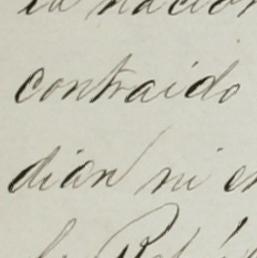 la nacion
contraido
dian ni en
la Repú